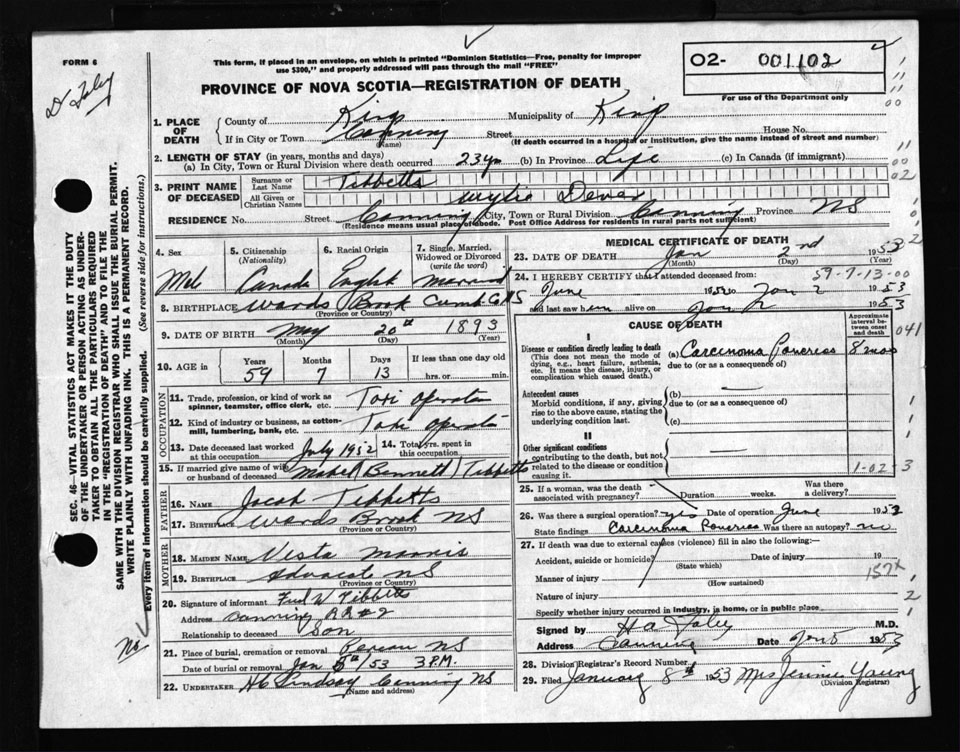 FORM 6
This form, if placed in an envelope, on which is printed "Dominion Statistics—Free, penalty for improper
use $300," and properly addressed will pass through the mail "FREE"
O2- 001102
For use of the Department only
Dr Foley
PROVINCE OF NOVA SCOTIA—REGISTRATION OF DEATH
SEC. 46—VITAL STATISTICS ACT MAKES IT THE DUTY
OF THE UNDERTAKER OR PERSON ACTING AS UNDER-
TAKER TO OBTAIN ALL THE PARTICULARS REQUIRED
IN THE "REGISTRATION OF DEATH" AND TO FILE THE
SAME WITH THE DIVISION REGISTRAR WHO SHALL ISSUE THE BURIAL PERMIT.
WRITE PLAINLY WITH UNFADING INK. THIS IS A PERMANENT RECORD.
Every item of information should be carefully supplied. (See reverse side for instructions.)
1. PLACE OF DEATH
County of Kings Municipality of Kings
If in City or Town Canning Street House No.
(Name) (If death occurred in a hospital or institution, give the name instead of street and number)
2. LENGTH OF STAY (in years, months and days)
(a) In City, Town or Rural Division where death occurred 23 yrs (b) In Province Life (c) In Canada (if immigrant)
3. PRINT NAME OF DECEASED
Surname or Last Name Tibbetts
All Given or Christian Names Wylie
RESIDENCE No. Street Canning City, Town or Rural Division Canning Province NS
(Residence means usual place of abode. Post Office Address for residents in rural parts not sufficient)
4. Sex 5. Citizenship (Nationality) 6. Racial Origin 7. Single, Married, Widowed or Divorced (write the word)
Male Canada English Married
8. BIRTHPLACE Wards Brook Cumb Co NS
(Province or Country)
9. DATE OF BIRTH May 20th 1893
(Month) (Day) (Year)
10. AGE in Years Months Days If less than one day old
59 7 13 hrs. or min.
OCCUPATION
11. Trade, profession, or kind of work as spinner, teamster, office clerk, etc. Taxi Operator
12. Kind of industry or business, as cotton-mill, lumbering, bank, etc. Taxi Operator
13. Date deceased last worked at this occupation July 1952 14. Total yrs. spent in this occupation
15. If married give name of wife or husband of deceased Mabel (Bennett) Tibbetts
FATHER
16. NAME Jacob Tibbetts
17. BIRTHPLACE Wards Brook NS
(Province or Country)
MOTHER
18. MAIDEN NAME Vesta Morris
19. BIRTHPLACE Advocate NS
(Province or Country)
20. Signature of informant Fred W Tibbetts
Address Canning RR#2
Relationship to deceased Son
21. Place of burial, cremation or removal NS
Date of burial or removal Jan 5th/53 3 P.M.
22. UNDERTAKER HC Lindsay Canning NS
(Name and address)
No
MEDICAL CERTIFICATE OF DEATH
23. DATE OF DEATH Jan 2nd 1953
(Month) (Day) (Year)
59-7-13-00
24. I HEREBY CERTIFY that I attended deceased from:
June 1952 to Jan 2 1953
and last saw him alive on Jan 2 1953
CAUSE OF DEATH
Approximate interval between onset and death
041
I
Disease or condition directly leading to death
(This does not mean the mode of dying, e.g., heart failure, asthenia, etc. It means the disease, injury, or complication which caused death.)
(a) Carcinoma Pancreas 8 mos
due to (or as a consequence of)
Antecedent causes
Morbid conditions, if any, giving rise to the above cause, stating the underlying condition last.
(b)
due to (or as a consequence of)
(c)
II
Other significant conditions
contributing to the death, but not related to the disease or condition causing it.
1-02-3
25. If a woman, was the death associated with pregnancy? Duration weeks. Was there a delivery?
26. Was there a surgical operation? yes Date of operation June 1952
State findings Carcinoma Pancreas Was there an autopsy? no
27. If death was due to external causes (violence) fill in also the following:—
Accident, suicide or homicide? Date of injury 19
(State which)
157x
Manner of injury
(How sustained)
Nature of injury
Specify whether injury occurred in industry, in home, or in public place
Signed by H A Foley M.D.
Address Canning Date Jan 5 1953
28. Division Registrar's Record Number
29. Filed January 8th 1953 Mrs Jennie Young
(Division Registrar)